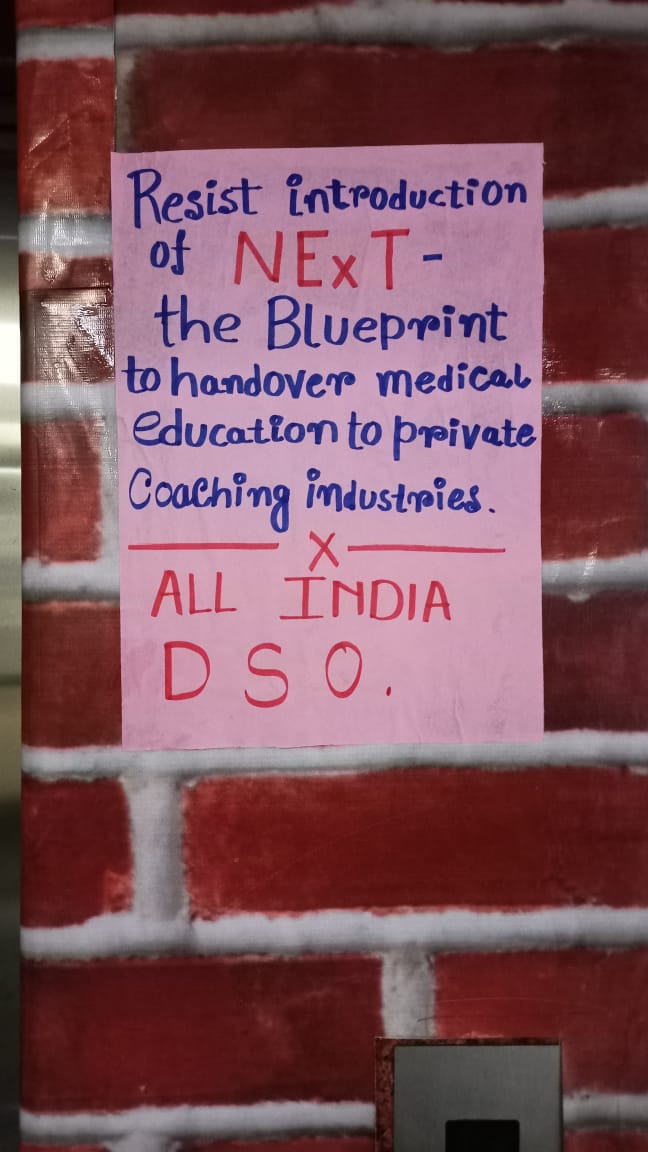 Resist introduction
of NExT-
the Blueprint
to handover medical
education to private
Coaching industries.
x
ALL INDIA
DSO.